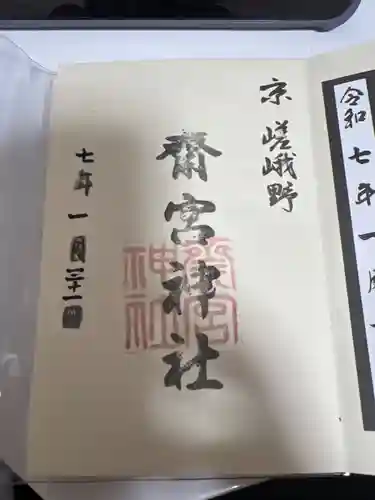 京 嵯峨野
齋宮神社
七年 一月三十一日
齋宮
神社
令和 七年 一月